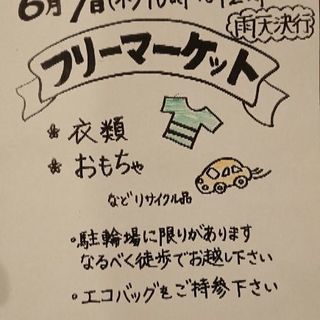 6月7日(木)10時
雨天決行
フリーマーケット
* 衣類
* おもちゃ
などリサイクル品
・駐輪場に限りがあります
なるべく徒歩でお越し下さい
・エコバッグをご持参下さい